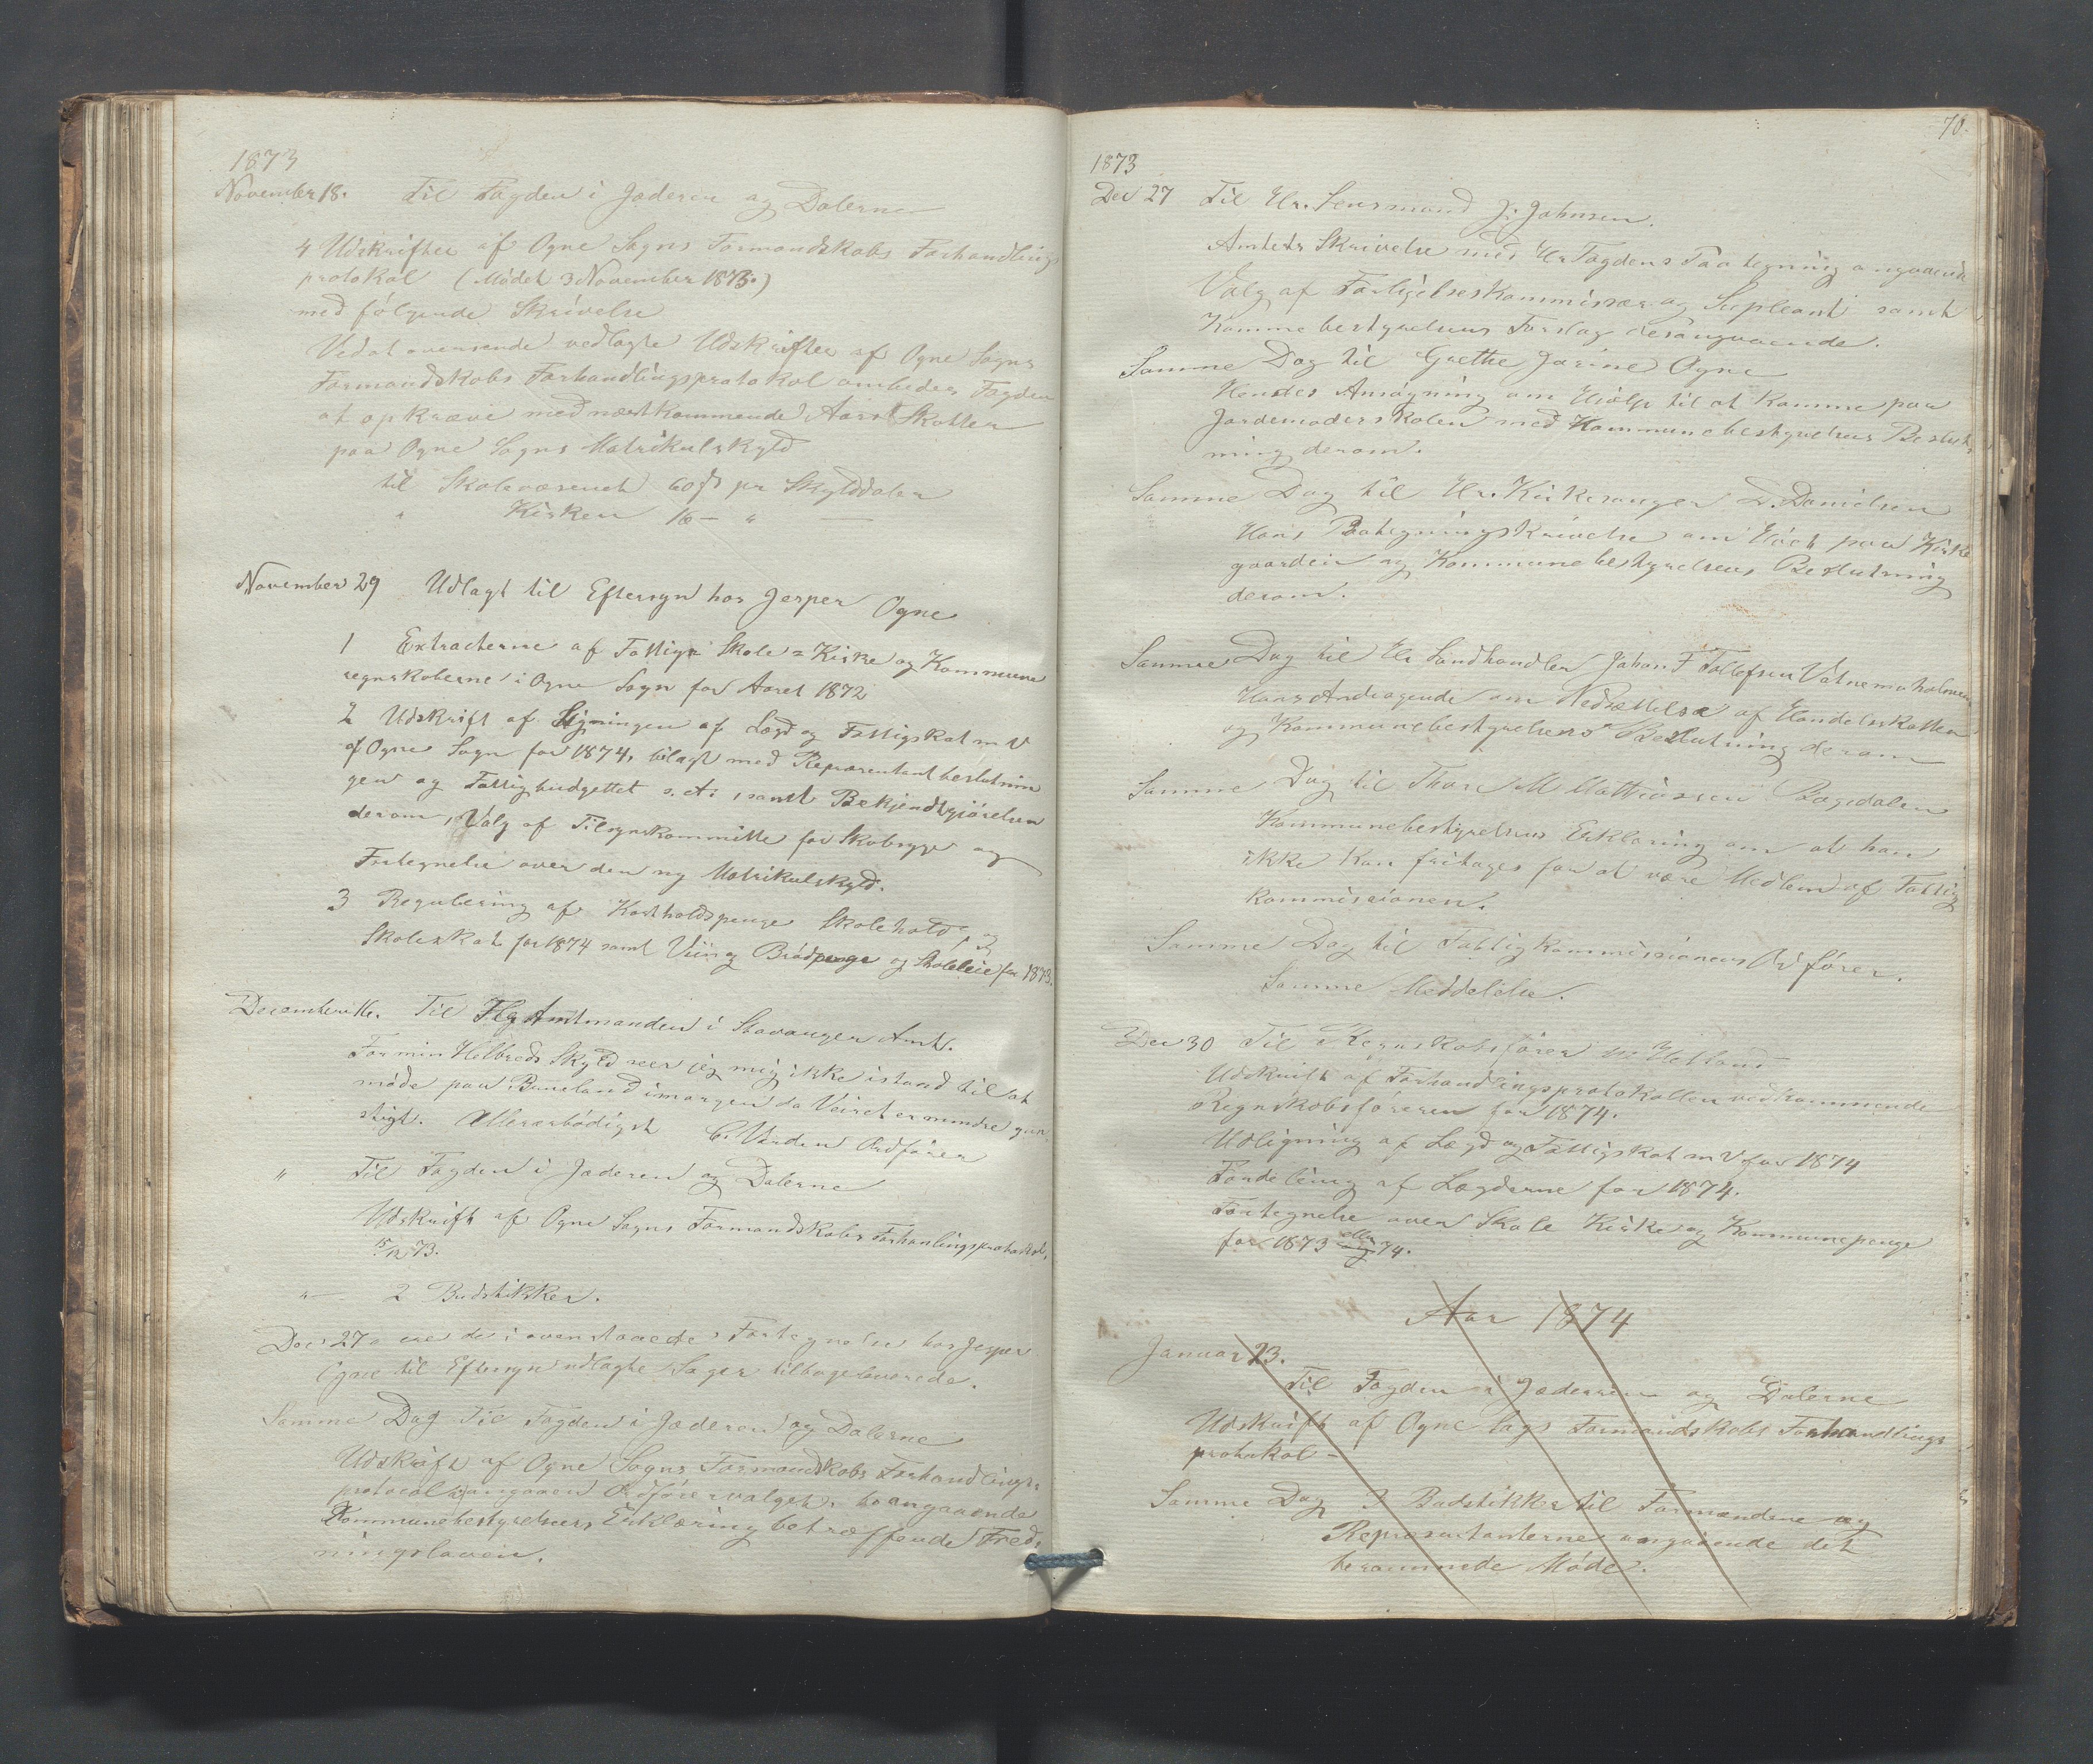 1873
November 18. Til Fogden i Jæderen og Dalerne
4 Udskrifter af Ogne Sogns Formandskabs Forhandlings
protokol (Mødet 3 November 1873.)
med følgende Skrivelse
Ved at oversende vedlagte Udskrifter af Ogne Sogns
Formandskabs Forhandlingsprotokol ombedes Fogden
at opkræve med næstkommende Aars Skatter
paa Ogne Sogns Matrikulskyld
til Skolevæsenet 60 ß pr Skylddaler
" Kirken 16 — " —
November 29 Udlagt til Eftersyn hos Jesper Ogne
1 Extracterne af Fattig- Skole = Kirke og Kommune
regnskaberne i Ogne Sogn for Aaret 1872
2 Udskrift af Ligningen af Lægd og Fattigskat m V
af Ogne Sogn for 1874, bilagt med Repræsentantbeslutnin
gen og Fattigbudgettet s. A. , samt Bekjendtgjørelsen
derom, Valg af Tilsynskommitte for Skobygge og
Fortegnelse over den ny Matrikulskyld.
3 Regulering af Kostholdspenge Skolehold, og
Skoleskat for 1874 samt Viin og Brødpenge og Skoleleie for 1873.
December 16. Til Hr Amtmanden i Stavanger Amt.
For min Helbreds Skyld seer jeg mig ikke istand til at
møde paa Bueland imorgen da Veiret er mindre gun
stigt. Allerærbødigst C. Værden Ordfører
" Til Fogden i Jæderen og Dalerne
Udskrift af Ogne Sogns Formandskabs Forhanlingsprotokol,
15/12 73.
" — 2 Budstikker.
Decr 27 ere de i ovenstaaede Fortegnelse hos Jesper
Ogne til Eftersyn udlagte Sager tilbageleverede.
Samme Dag Til Fogden i Jæderen og Dalerne
Udskrift af Ogne Sogns Formandskabs Forhandlings
protocol angaaen Ordførervalget. to angaaende
Kommunebestyrelsens Erklæring betræffende Fred,
ningsloven.
70.
1873
Dec 27 Til Hr. Lensmand J. Johnsen.
Amtets Skrivelse med Hr Fogdens Paategning angaaende
Valg af Forligelseskommissær og Supleant samt
Kommebestyrelsens Forslag desangaaende.
Samme Dag til Grethe Jorine Ogne
Hendes Ansøgning om Hjælp til at komme paa
Jordemoderskolen med Kommunebestyrelsens Beslut
ning derom.
Samme Dag til Hr. Kirkesanger D. Danielsen
Hans Paategningsskrivelse om Høet paa Kirke
gaarden og Kommunebestyrelsens Beslutning
derom.
Samme Dag til Hr Landhandler Johan F Tollefsen Vatnemoholmen
Hans Andragende om Nedsættelse af Handelsskatten
og Kommunebestyrelsens Beslutning derom
Samme Dag til Thor M Mathiassen Bøgedalen
Kommunebestyrelsens Erklæring om at han
ikke kan fritages for at være Medlem af Fattig
kommissionen.
Samme Dag til Fattigkommissionens Ordfører.
Samme Meddelelse.
Dec 30 Til Regnskabsfører M Hetland
Udskrift af Forhandlingsprotokollen vedkommende
Regnskabsføreren for 1874.
Udligning af Lægd og Fattigskat m V for 1874
Fordeling af Lægderne for 1874.
Fortegnelse over Skole Kirke og Kommunepenge
for 1873 og eller 74.
Aar 1874
Januar 23.
Til Fogden i Jæderen og Dalerne
Udskrift af Ogne Sogs Formandskabs Forhandlings
protokol —
Samme Dag 2 Budstikker til Formændene og
Repræsentanterne angaaende det
berammede Møde.